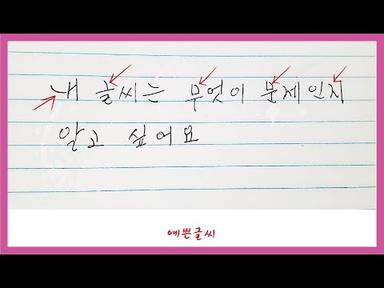 내 글씨는 무엇이 문제인지
알고 싶어요
예쁜글씨